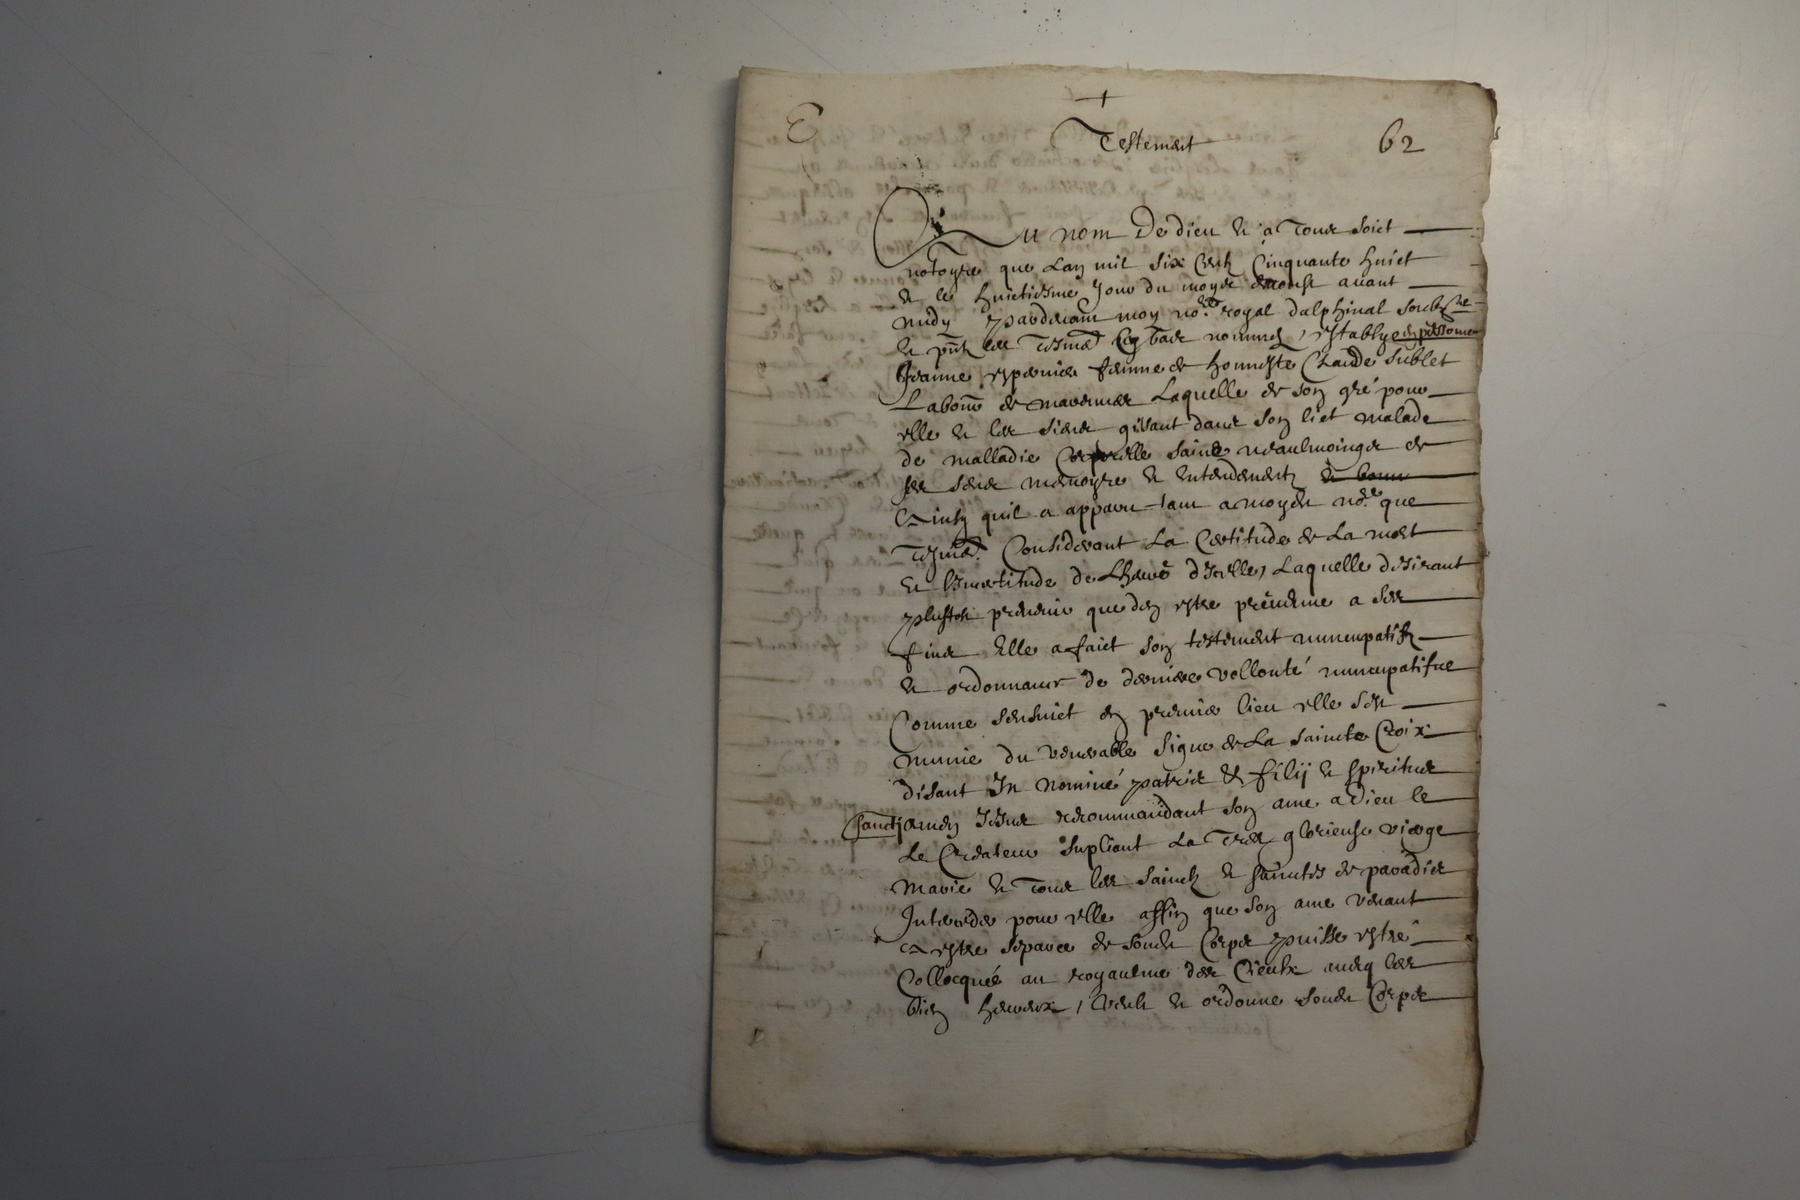 +
E
Testement
62
Au nom De dieu et a Tous soict
notoyre que Lan mil six Cents Cinquante huict
et le huictiesme Jour du moys daoust avant
midy pardevant moy no.re royal dalphinal soubsne
et pnts les Tesmo Cy bas nommes, establye en personne
Jeanne femme de honneste Claude Sublet
Labour de Laquelle de son gré pour
elle et les siens gisant dans son lict malade
de malladie Corporelle saine neaulmoings de
ses sens memoyre et entendement et bonne
Ainsy quil a apparu tant a moydit no.re que
Tesmo. Considerant La Certitude de La mort
et Lincertitude de Lheure dicelle, Laquelle desirant
plustost prevenir que den estre prevenue a ses
fins Elle a faict son testement nuncupatif
et ordonnance de derniere vollonté nuncupatifve
Comme sensuict en premier lieu elle sest
munie du venerable signe de La saincte Croix
disant In nominé patris & filij et spiritus
sancti amen Jesus recommandant son ame a dieu le
Le Createur supliant La Tres glorieuse vierge
Marie et Tous les saincts et sainctes de paradis
Interceder pour elle affin que son ame venant
A estre separee de sondit Corps puisse estre
Collocquée au royaulme des Cieulx avec les
bien heureux, Veult et ordonne sondit Corps